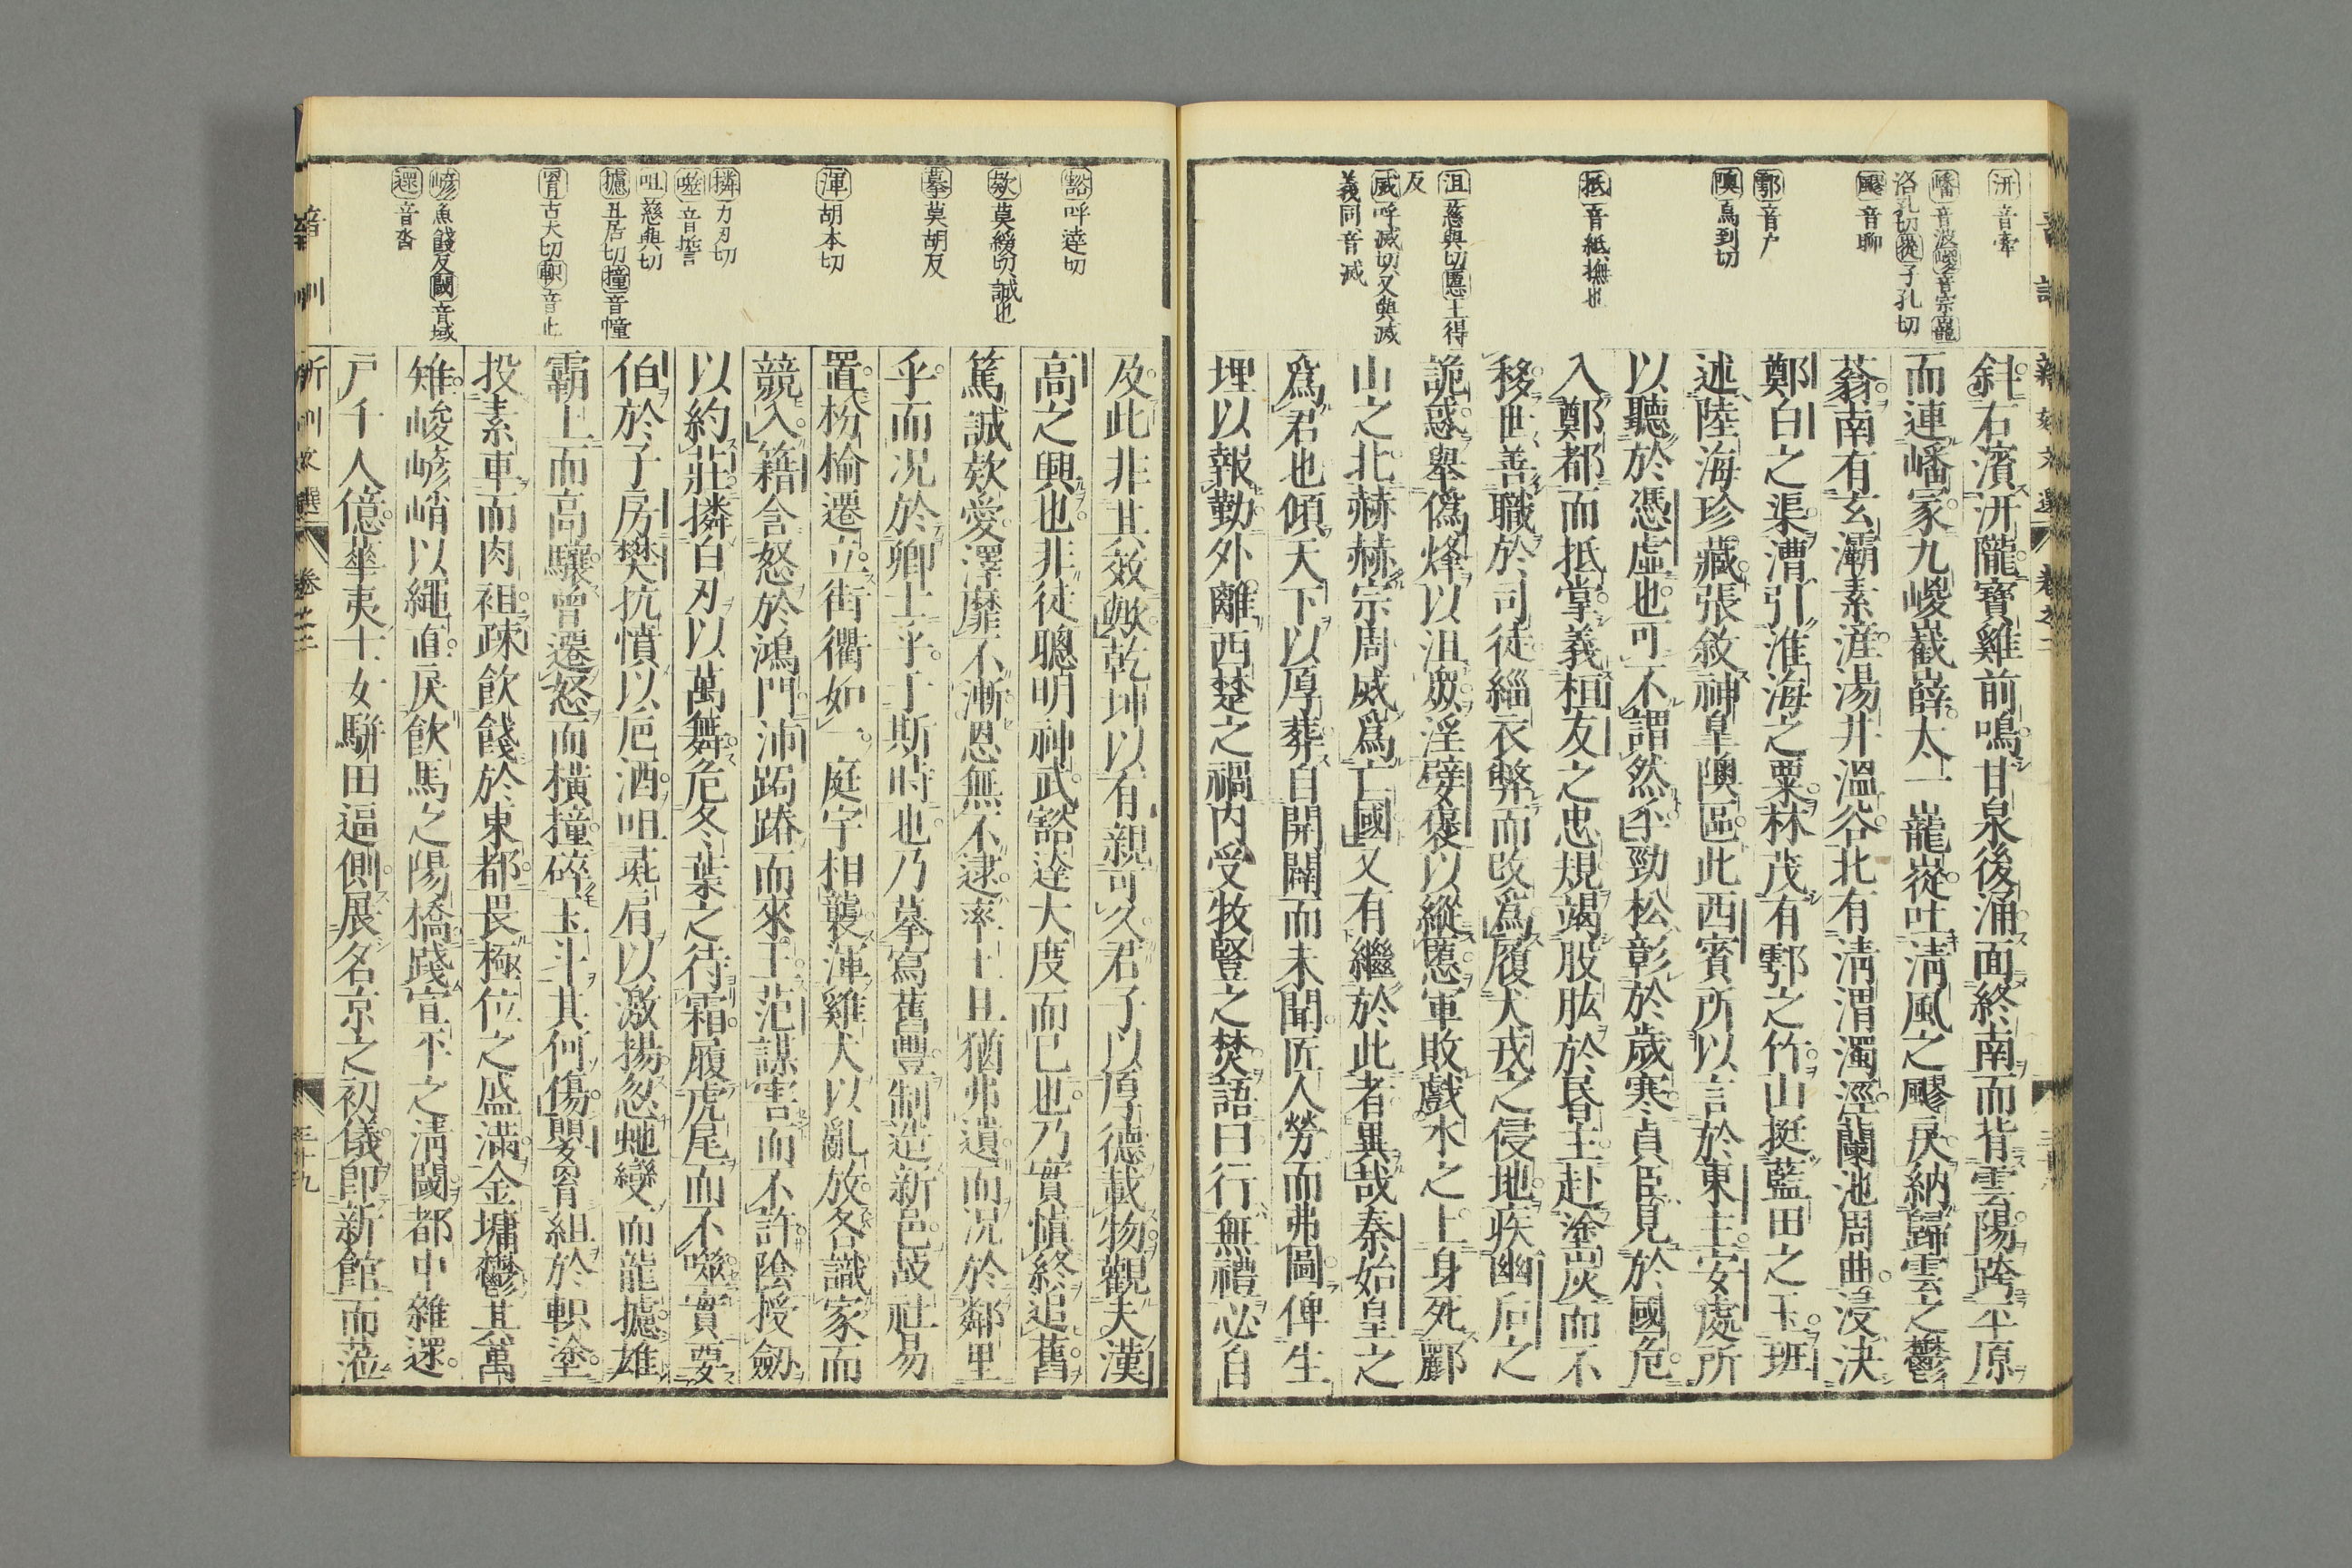 斜右濱汧隴寶雞前鳴甘泉後涌面終南而背雲陽跨平原
而連嶓冢九嵕巀嶭太一巃嵸吐清風之飂戾納歸雲之鬱
蓊南有玄灞素滻湯井溫谷北有清渭濁涇蘭池周曲浸決
鄭白之渠漕引淮海之粟林茂有鄠之竹山挺藍田之玉班
述陸海珍藏張敘神皐隩區此西賓所以言於東主安處所
以聽於憑虛也可不謂然乎勁松彰於歲寒貞臣見於國危
入鄭都而抵掌義桓友之忠規竭股肱於昬主赴塗炭而不
移世善職於司徒緇衣弊而改爲履犬戎之侵地疾幽后之
詭惑舉僞烽以沮眾淫嬖褒以縱慝軍敗戲水之上身死酈
山之北赫赫宗周烕爲亡國又有繼於此者異哉秦始皇之
爲君也傾天下以厚葬自開闢而未聞匠人勞而弗圖俾生
埋以報勤外離西楚之禍內受牧豎之焚語曰行無禮必自
汧音牽
嶓音波嵕音宗巃
洛孔切嵸子孔切
飂音聊
鄠音户
隩烏到切
抵音紙撫也
沮慈與切慝土得
反
烕呼滅切又與滅
義同音滅
及此非其效歟乾坤以有親可久君子以厚德載物觀夫漢
高之興也非徒聰明神武豁達大度而已也乃實愼終追舊
篤誠款愛澤靡不漸恩無不逮率土且猶弗遺而況於鄰里
乎而況於卿士乎于斯時也乃摹寫舊豐制造新邑故社易
置枌榆遷立街衢如一庭宇相襲渾雞犬以亂放各識家而
競入籍含怒於鴻門沛跼蹐而來王范謀害而不許陰授劔
以約莊撛白刃以萬舞危冬葉之待霜履虎尾而不噬實要
伯於子房樊抗憤以巵酒咀彘肩以激揚忽虵變而龍攄雄
霸上而高驤曾遷怒而橫撞碎玉斗其何傷嬰罥組於軹塗
投素車而肉袒疎飲餞於東都畏極位之盛滿金墉鬱其萬
雉峻嵃峭以繩直戾飲馬之陽橋踐宣平之清閾都中雜遝
戸千人億華夷士女駢田逼側展名京之初儀卽新館而蒞
豁呼達切
款莫緩切誠也
摹莫胡反
渾胡本切
撛力刃切
噬音誓
咀慈與切
攄丑居切撞音幢
罥古犬切軹音止
嵃魚餞反閾音域
遝音沓